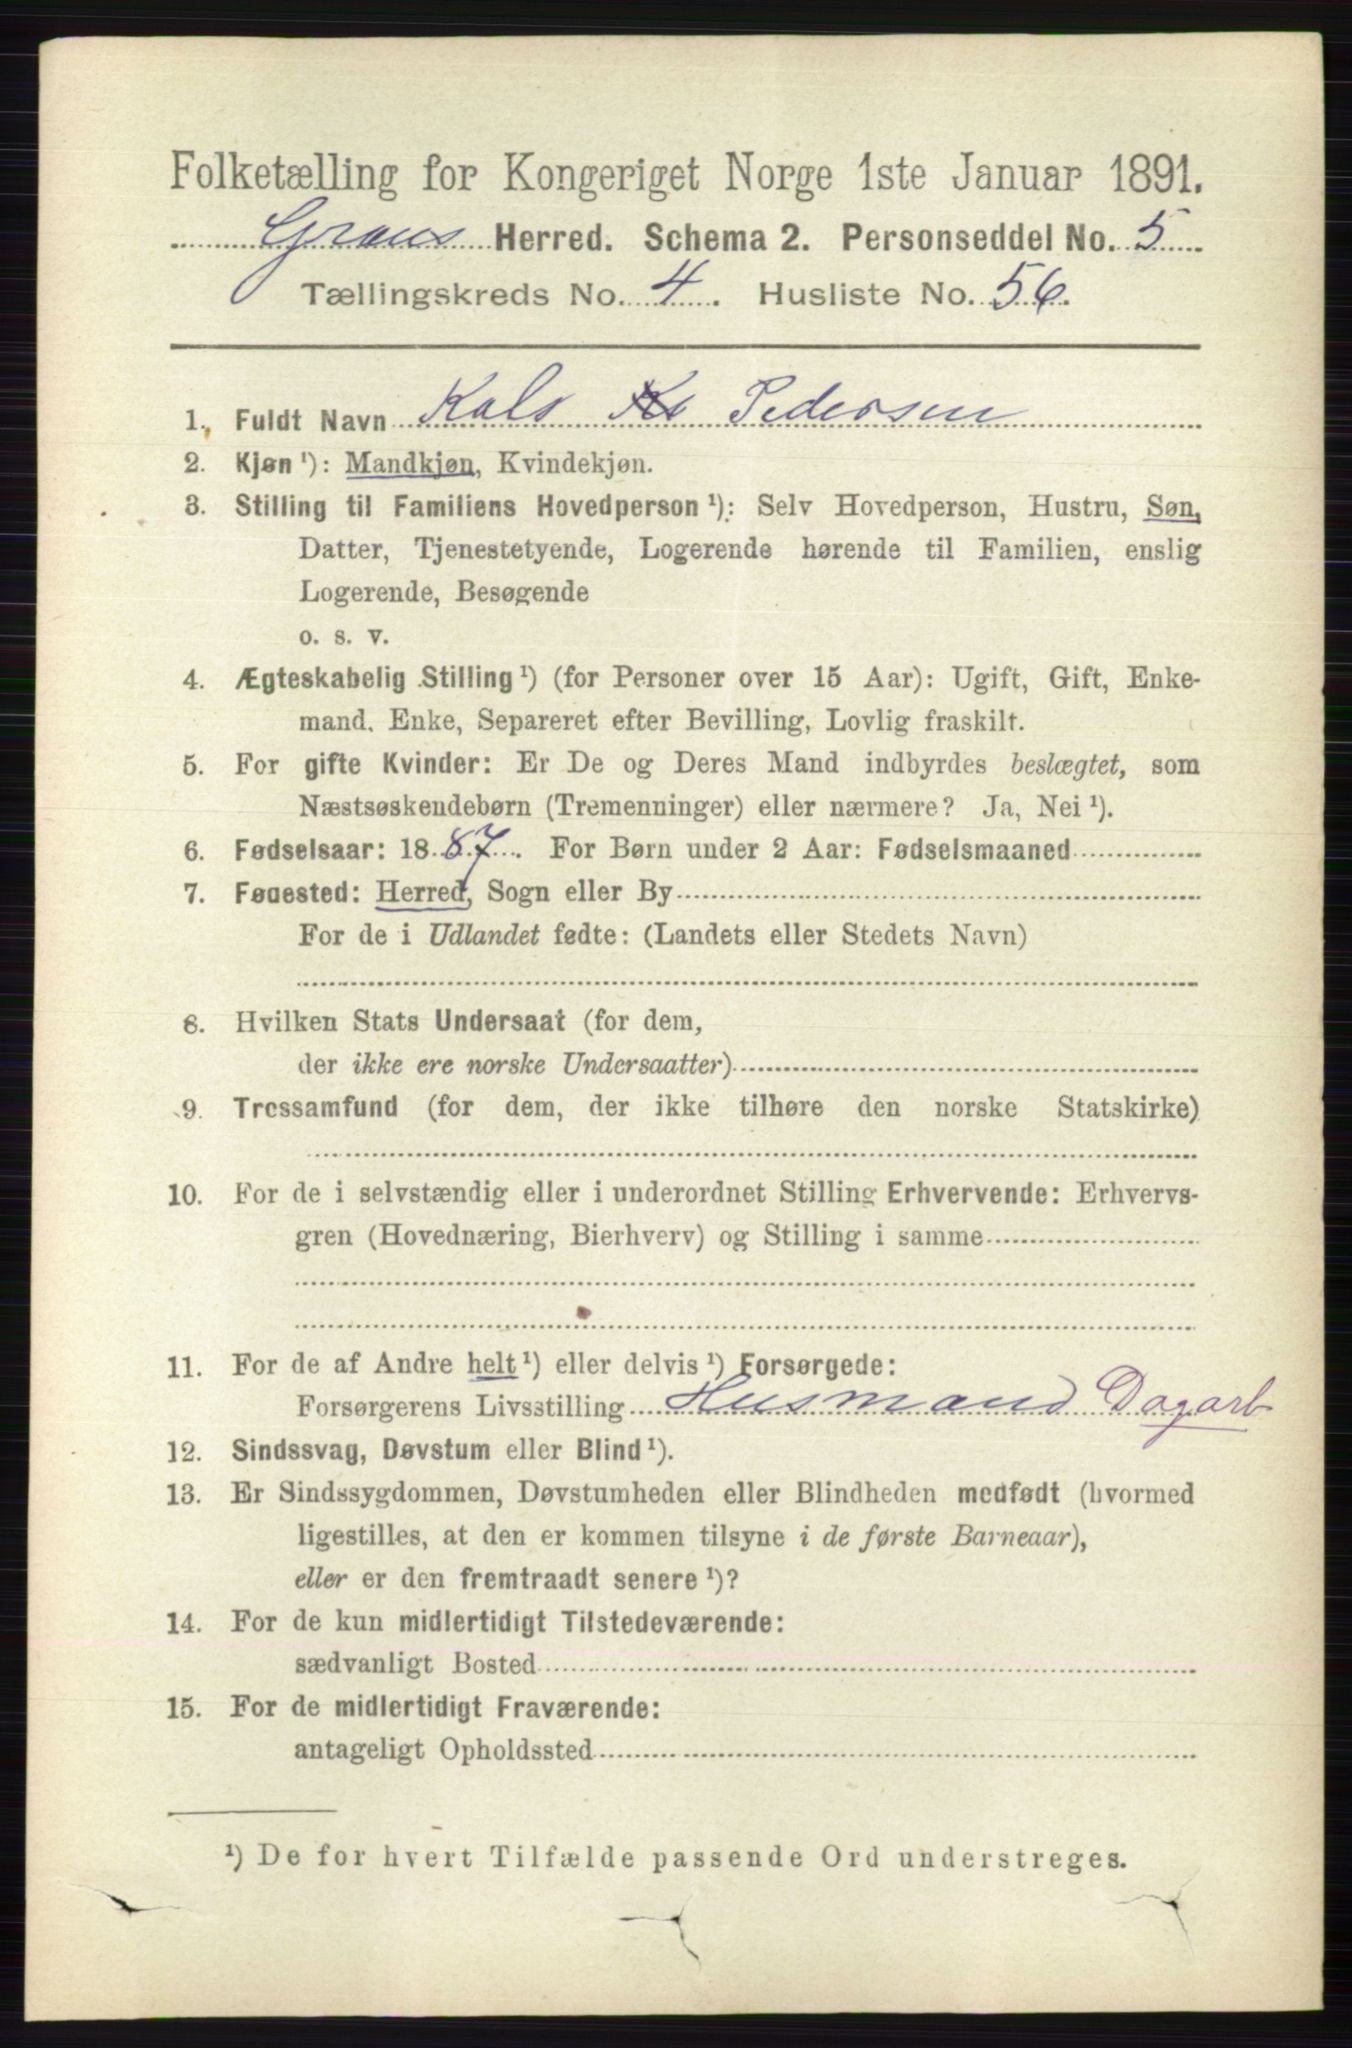 Folketælling for Kongeriget Norge 1ste Januar 1891.
Grans Herred. Schema 2. Personseddel No. 5
Tællingskreds No. 4. Husliste No. 56.
1. Fuldt Navn Kals Pedersen
2. Kjøn ¹): Mandkjøn, Kvindekjøn.
3. Stilling til Familiens Hovedperson ¹): Selv Hovedperson, Hustru, Søn,
Datter, Tjenestetyende, Logerende hørende til Familien, enslig
Logerende, Besøgende
o. s. v.
4. Ægteskabelig Stilling ¹) (for Personer over 15 Aar): Ugift, Gift, Enke-
mand, Enke, Separeret efter Bevilling, Lovlig fraskilt.
5. For gifte Kvinder: Er De og Deres Mand indbyrdes beslægtet, som
Næstsøskendebørn (Tremenninger) eller nærmere? Ja, Nei ¹).
6. Fødselsaar: 1887. For Børn under 2 Aar: Fødselsmaaned
7. Fødested: Herred, Sogn eller By
For de i Udlandet fødte: (Landets eller Stedets Navn)
8. Hvilken Stats Undersaat (for dem,
der ikke ere norske Undersaatter)
9. Trossamfund (for dem, der ikke tilhøre den norske Statskirke)
10. For de i selvstændig eller i underordnet Stilling Erhvervende: Erhvervs-
gren (Hovednæring, Bierhverv) og Stilling i samme
11. For de af Andre helt ¹) eller delvis ¹) Forsørgede:
Forsørgerens Livsstilling Husmand Dagarb
12. Sindssvag, Døvstum eller Blind ¹).
13. Er Sindssygdommen, Døvstumheden eller Blindheden medfødt (hvormed
ligestilles, at den er kommen tilsyne i de første Barneaar),
eller er den fremtraadt senere ¹)?
14. For de kun midlertidigt Tilstedeværende:
sædvanligt Bosted
15. For de midlertidigt Fraværende:
antageligt Opholdssted
¹) De for hvert Tilfælde passende Ord understreges.